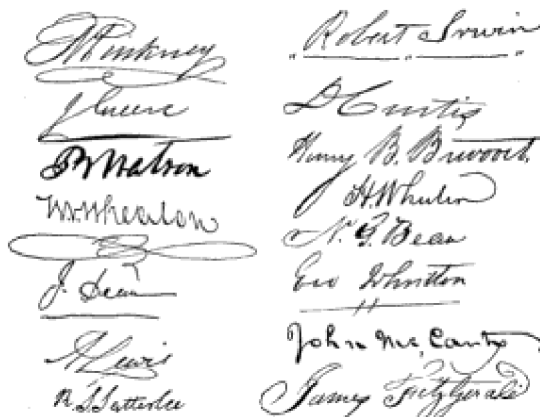 Pinkney
J.
Watson
Wheaton
J. Dean
A Lewis
R. S. Satterlee
Robert Irwin
D Curtis
Henry B. Brevoort
H. Wheeler
N. G. Bean
Geo Whitton
John McCarty
James Fitzgerald